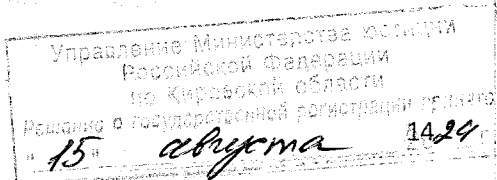 Управление Министерства юстиции
Российской Федерации
по Кировской области
Решение о государственной регистрации принято
"15" августа 2024 г.